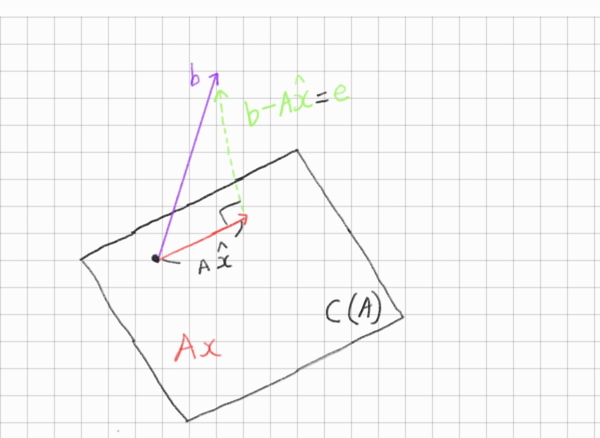 b
b-Ax̂=e
Ax̂
C(A)
Ax